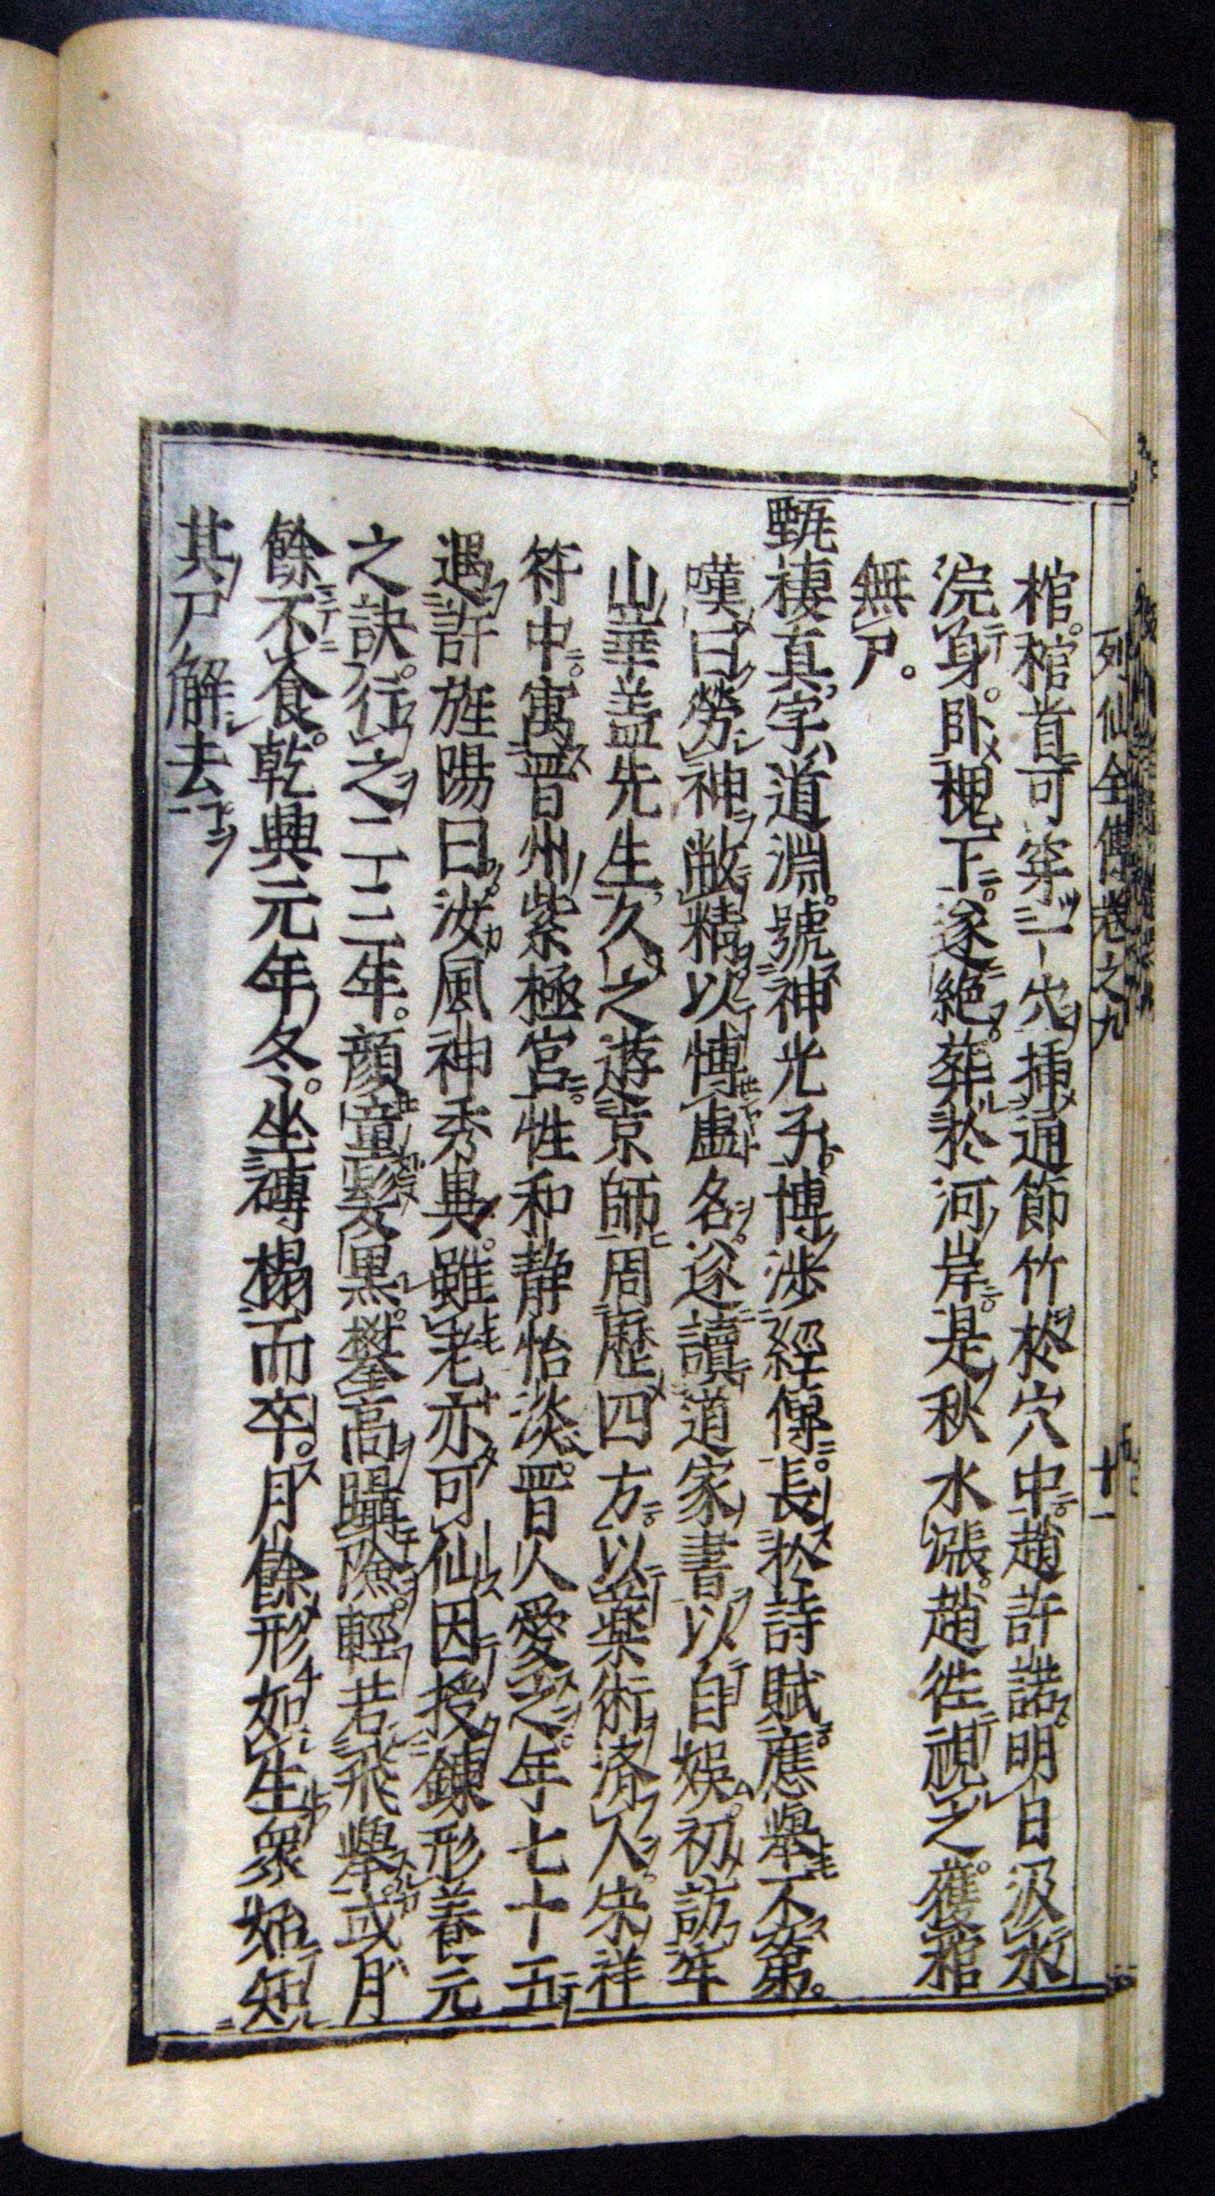 列仙全傳卷之九 十一
棺棺首可穿一穴揷通節竹於穴中趙許諾明日汲水
浣身卧槐下遂絕葬於河岸是秋水漲趙徃視之獲棺
無尸
甄棲真字道淵號神光子博渉經傳長於詩賦應舉不第
嘆曰勞神敝精以博虛名遂讀道家書以自娯初訪牢
山華盖先生久之遊京師周歷四方以藥術濟人宋祥
符中寓晋州紫極宮性和静恬淡晋人愛之年七十五
遇許旌陽曰汝風神秀異雖老亦可仙因授鍊形養元
之訣行之二三年顔童髮黒攀高躡險輕若飛舉或月
餘不食乾興元年冬坐磚榻而卒月餘形如生衆始知
其尸解去